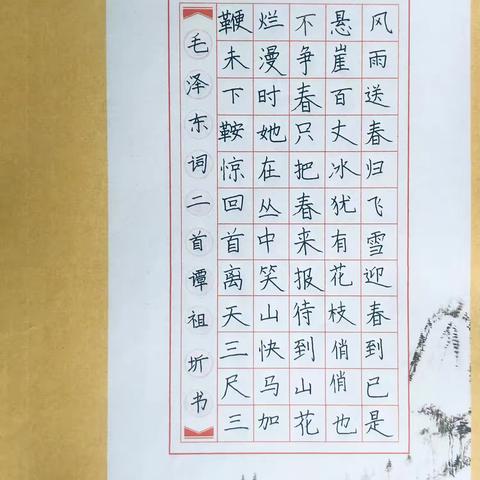 风雨送春归飞雪迎春到已是
悬崖百丈冰犹有花枝俏俏也
不争春只把春来报待到山花
烂漫时她在丛中笑山快马加
鞭未下鞍惊回首离天三尺三
毛泽东词二首谭祖圻书